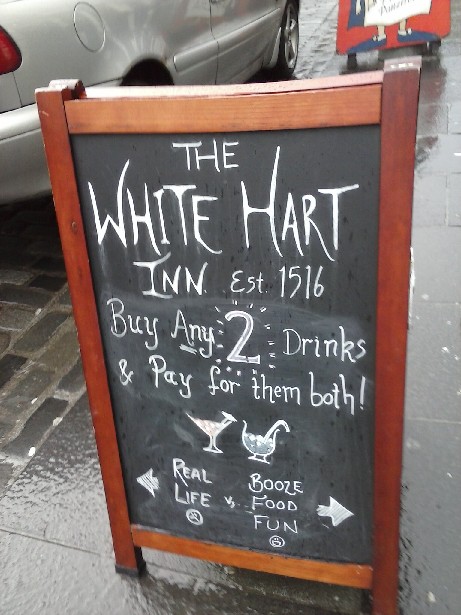 THE
WHITE HART
INN Est. 1516
Buy Any 2 Drinks
& Pay for them both!
REAL LIFE vs. BOOZE FOOD FUN